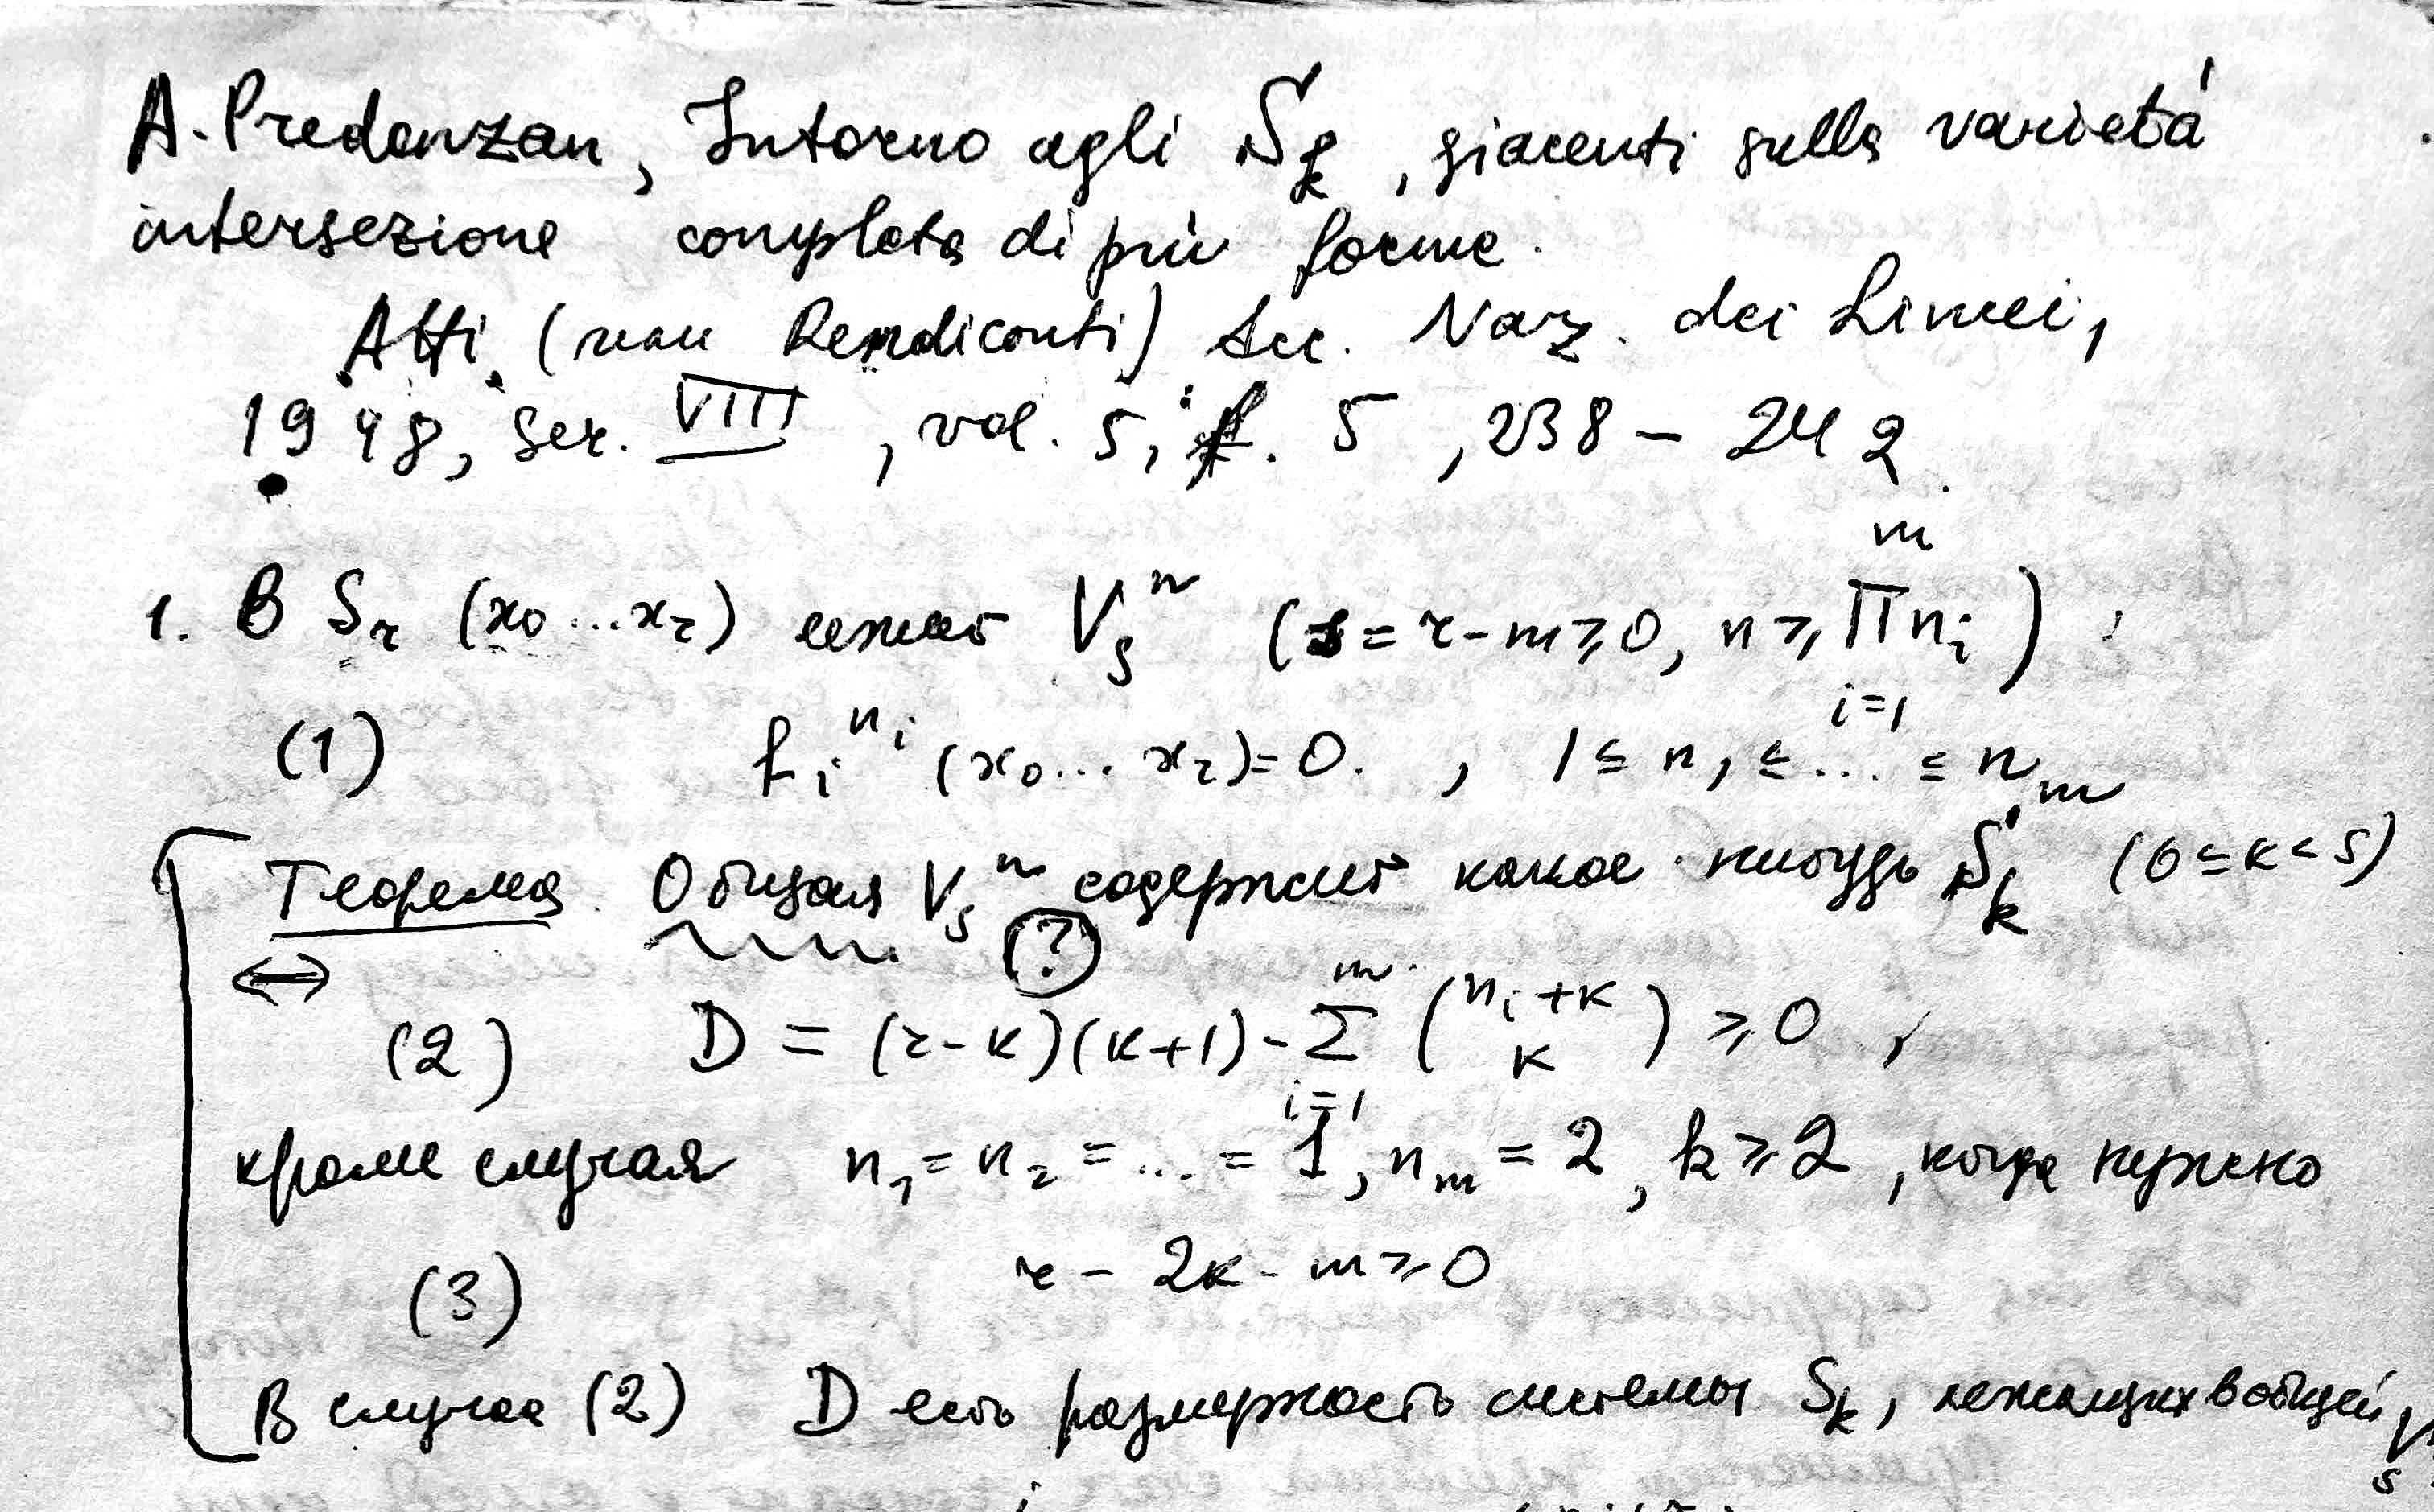 A. Predanzan, Intorno agli S_k, giacenti sulla varietá
intersezione completa di più forme.
Atti (или Rendiconti) Acc. Naz. dei Lincei,
1948, ser. VIII, vol. 5, f. 5, 238 – 242.
1. В S_r (x_0 ... x_r) лежит V_s^n (s = r - m ≥ 0, n ≥ ∏_{i=1}^{m} n_i)
(1) f_i^{n_i} (x_0 ... x_r) = 0. , 1 ≤ n_1 ≤ ... ≤ n_m
Теорема. Общая V_s^n содержит какое-нибудь S_k (0 ≤ k < s)
⟷ (?)
(2) D = (r-k)(k+1) - ∑_{i=1}^{m} (n_i+k \choose k) ≥ 0 ,
кроме случая n_1 = n_2 = ... = 1, n_m = 2, k ≥ 2, когда нужно
(3) r - 2k - m ≥ 0
В случае (2) D есть размерность системы S_k, лежащих в общей V_s